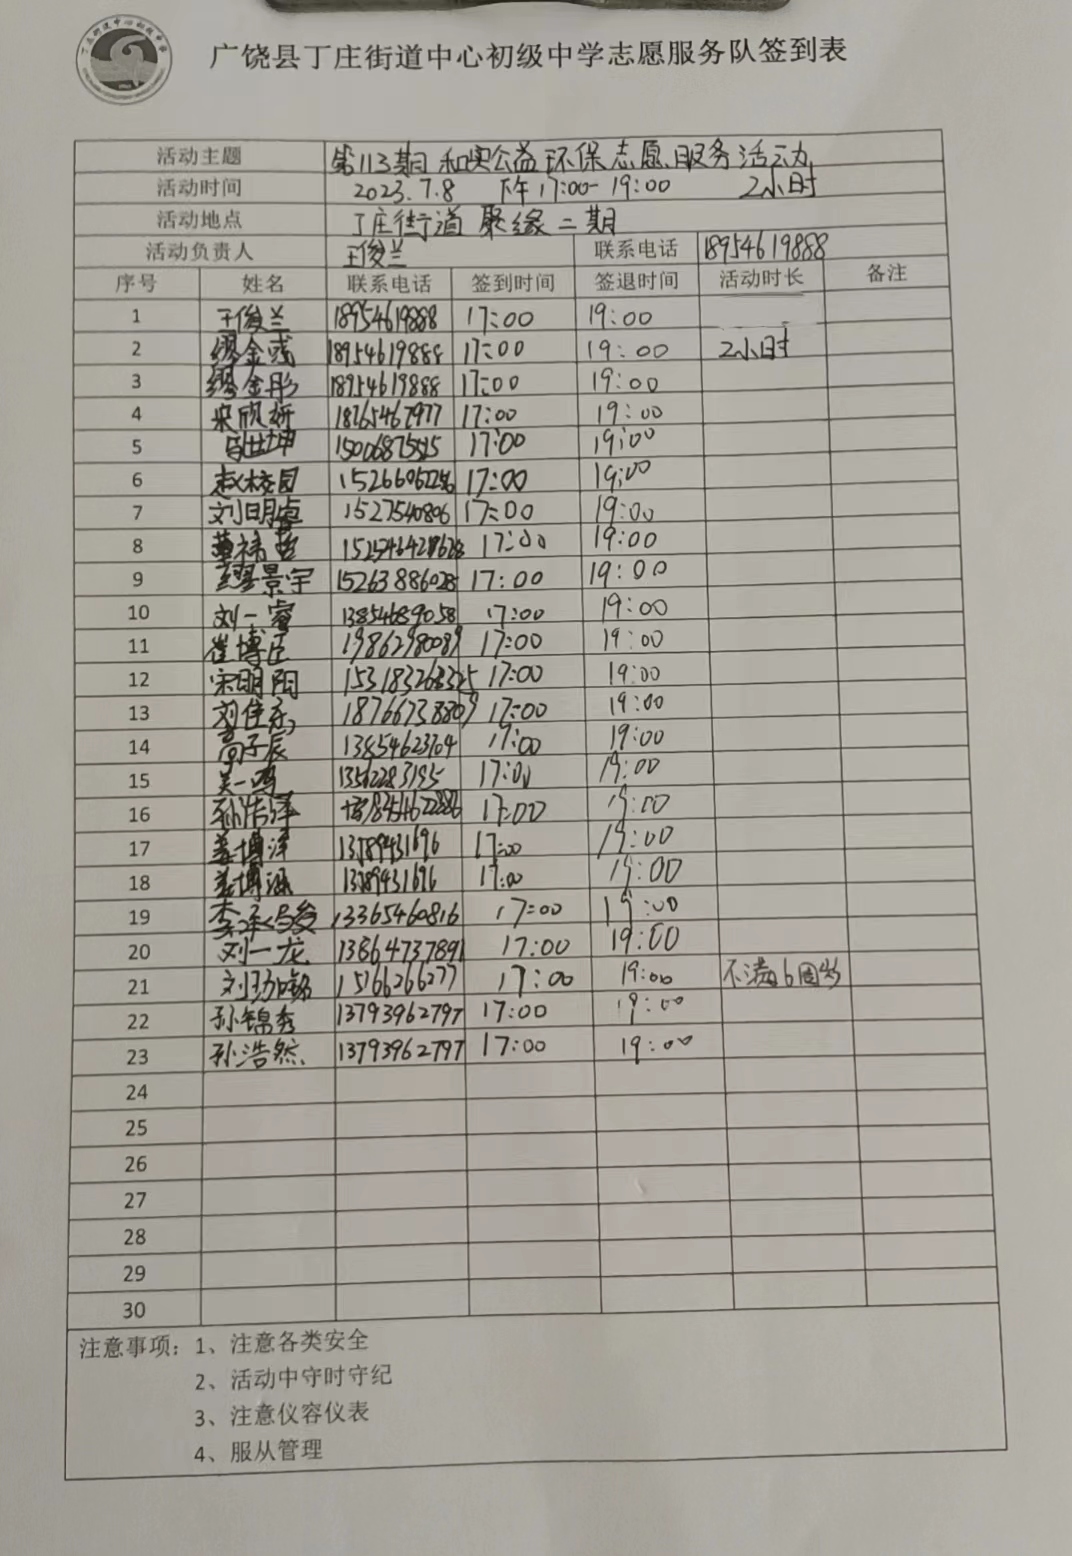 广饶县丁庄街道中心初级中学志愿服务队签到表
活动主题 第113期 和奥公益 环保志愿服务活动
活动时间 2023.7.8 下午 17:00-19:00 2小时
活动地点 丁庄街道 聚缘二期
活动负责人 王俊兰 联系电话 18954619888
序号 姓名 联系电话 签到时间 签退时间 活动时长 备注
1 王俊兰 18954619888 17:00 19:00
2 缪金彧 18954619888 17:00 19:00 2小时
3 缪金彤 18954619888 17:00 19:00
4 宋欣妍 17:00 19:00
5 马世坤 17:00 19:00
6 赵校园 17:00 19:00
7 刘明卓 1527540806 17:00 19:00
8 17:00 19:00
9 景宇 15263886028 17:00 19:00
10 刘一睿 13854689058 17:00 19:00
11 崔博臣 17:00 19:00
12 宋明阳 15318326325 17:00 19:00
13 刘佳 18766738809 17:00 19:00
14 高子辰 17:00 19:00
15 吴一鸣 13562283195 17:00 19:00
16 孙浩泽 17:00 19:00
17 姜博泽 17:00 19:00
18 姜博涵 17:00 19:00
19 李承骏 13365460816 17:00 19:00
20 刘一龙 13864737891 17:00 19:00
21 15166266277 17:00 19:00 不满6周岁
22 孙锦秀 13793962797 17:00 19:00
23 孙浩然 13793962797 17:00 19:00
24
25
26
27
28
29
30
注意事项：1、注意各类安全
2、活动中守时守纪
3、注意仪容仪表
4、服从管理